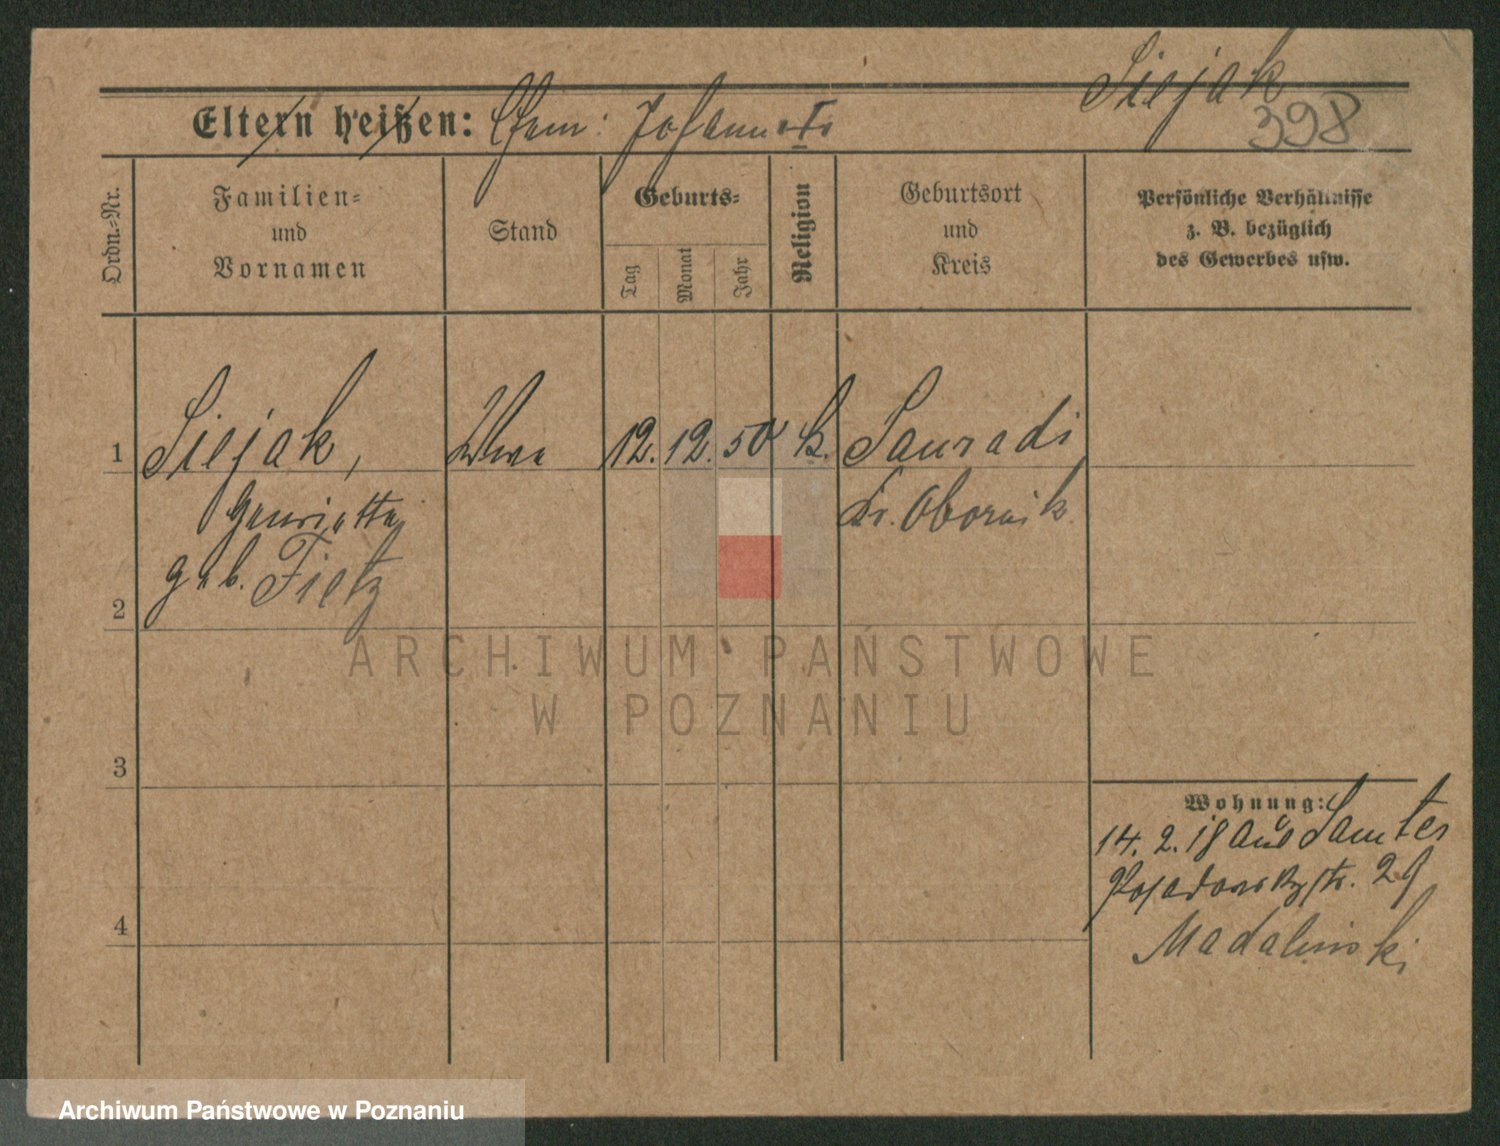 Siejak
398
Eltern heißen: Ehem: Johann
Ordn.-Nr.
Familien-
und
Vornamen
Stand
Geburts-
Tag
Monat
Jahr
Religion
Geburtsort
und
Kreis
Persönliche Verhältnisse
z. B. bezüglich
des Gewerbes usw.
1 Siejak, Wwe 12. 12. 50 k.
Henriette Kr. Obornik
geb. Fietz
2
3
4
Wohnung: Samter
14. 2. 18 aus
Posadowskystr. 29
Madalinski
ARCHIWUM PAŃSTWOWE
W POZNANIU
Archiwum Państwowe w Poznaniu